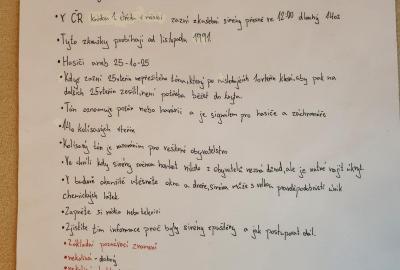 • V ČR každou 1. středu v měsíci zazní zkušební sirény přesně ve 12:00 dlouhý 140s
• Tyto zkoušky probíhají od listopadu 1991
• Hasiči aneb 25-10-25
• Když zazní 25 vteřin nepřetržitého tónu, který po následujících 10 vteřin klesá, aby pak na
dalších 25 vteřin zesílil, není potřeba běžet do krytu.
• Tón oznamuje požár nebo havárii a je signálem pro hasiče a záchranáře
• 140 kolísavých vteřin
• Kolísavý tón je varováním pro veškeré obyvatelstvo
• Ve chvíli kdy siréna začne houkat nikdo z obyvatel nezná důvod, ale je nutné najít úkryt
• V budově okamžitě utěsněte okna a dveře, siréna může s velkou pravděpodobností únik
chemických látek
• Zapněte si rádio nebo televizi
• Zjistíte tím informace proč byly sirény spuštěny a jak postupovat dál.
• Základní poznávací znamení
• nekolísá - dobrý